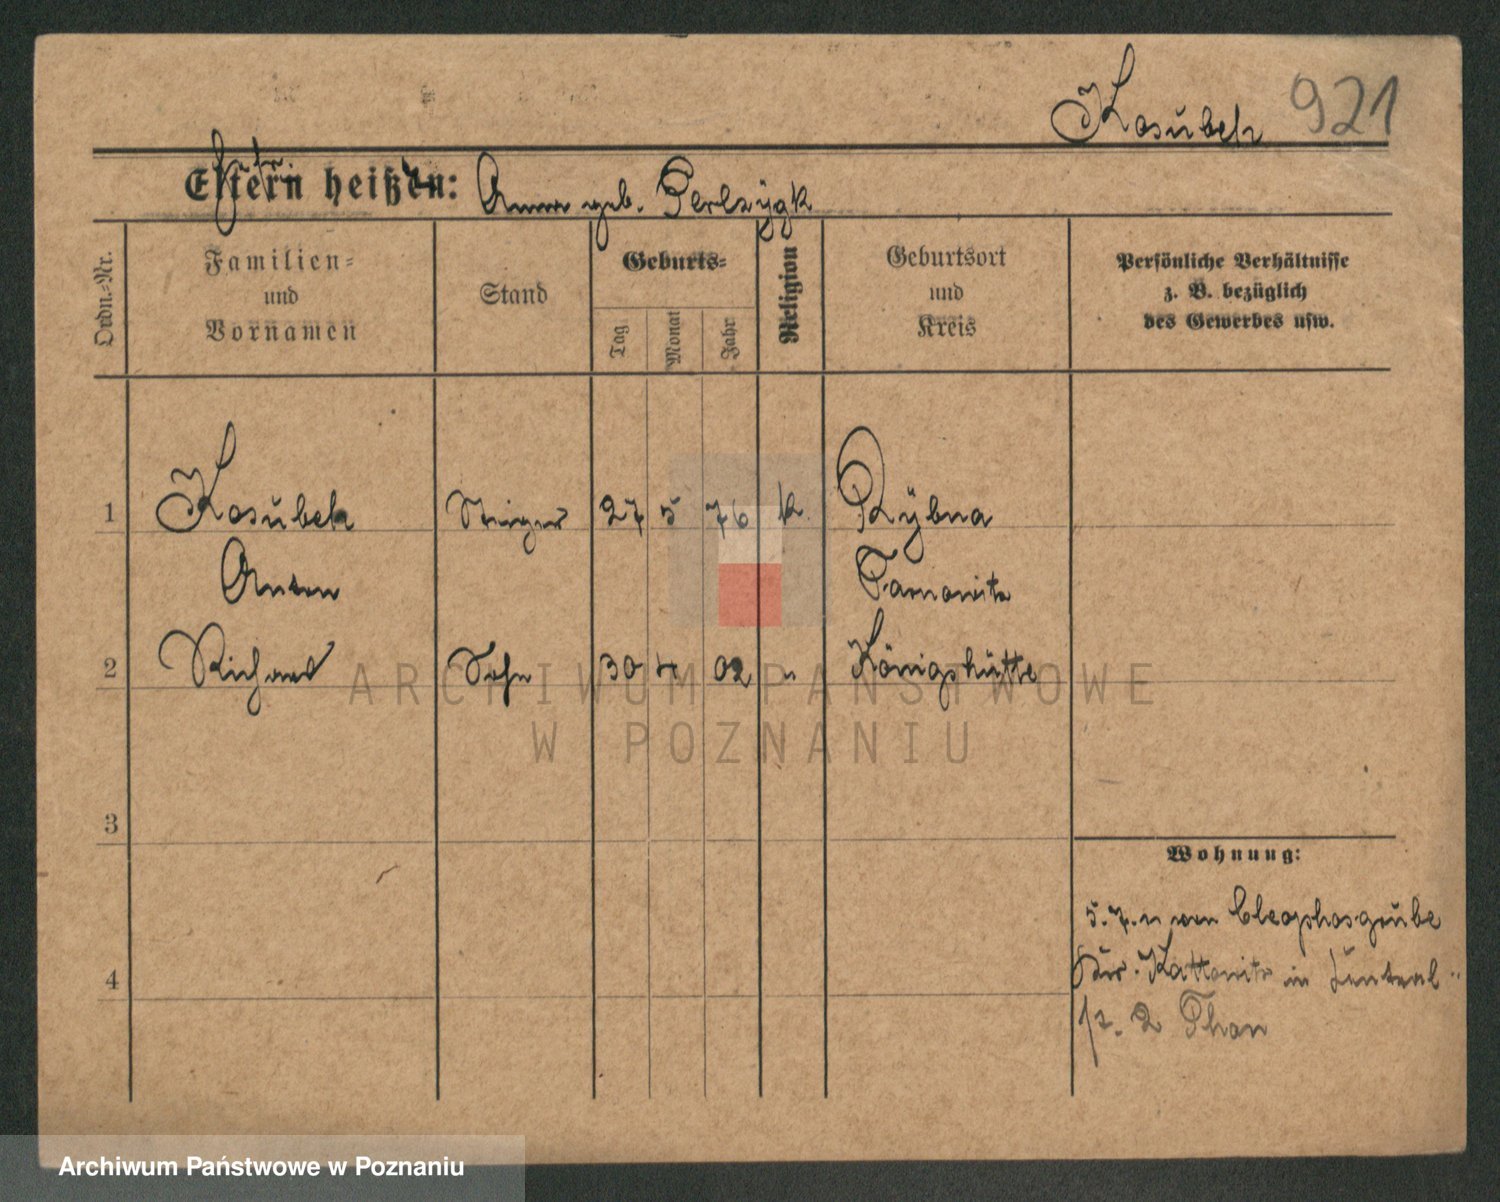 Kosubek 921
Eltern heißen: Anna geb. Perlzÿgk
Ordn.-Nr.
Familien-
und
Vornamen
Stand
Geburts-
Tag
Monat
Jahr
Religion
Geburtsort
und
Kreis
Persönliche Verhältnisse
z. B. bezüglich
des Gewerbes usw.
1 Kosubek Steiger 27 5 76 k. Rÿbna
Anton Tarnowitz
2 Richard Sohn 30 4 02 " Königshütte
3
Wohnung:
5.7. von Cleophasgrube
Kr. Kattowitz in Zentral-
4
2 Thon
ARCHIWUM PAŃSTWOWE
W POZNANIU
Archiwum Państwowe w Poznaniu